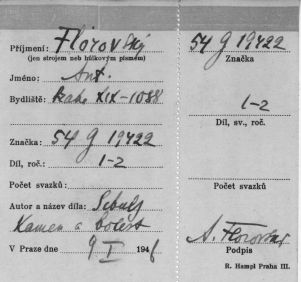 Příjmení: Florovský
(jen strojem neb hůlkovým písmem)
Jméno: Ant.
Bydliště: XIX-1088
Značka: 54 G 19422
Díl, roč.: 1-2
Počet svazků:
Autor a název díla: Schulz
Kamen a bolest
V Praze dne 9 I 1946
54 G 19422
Značka
1-2
Díl, sv., roč.
Počet svazků
A. Florovskij
Podpis
R. Hampl Praha III.